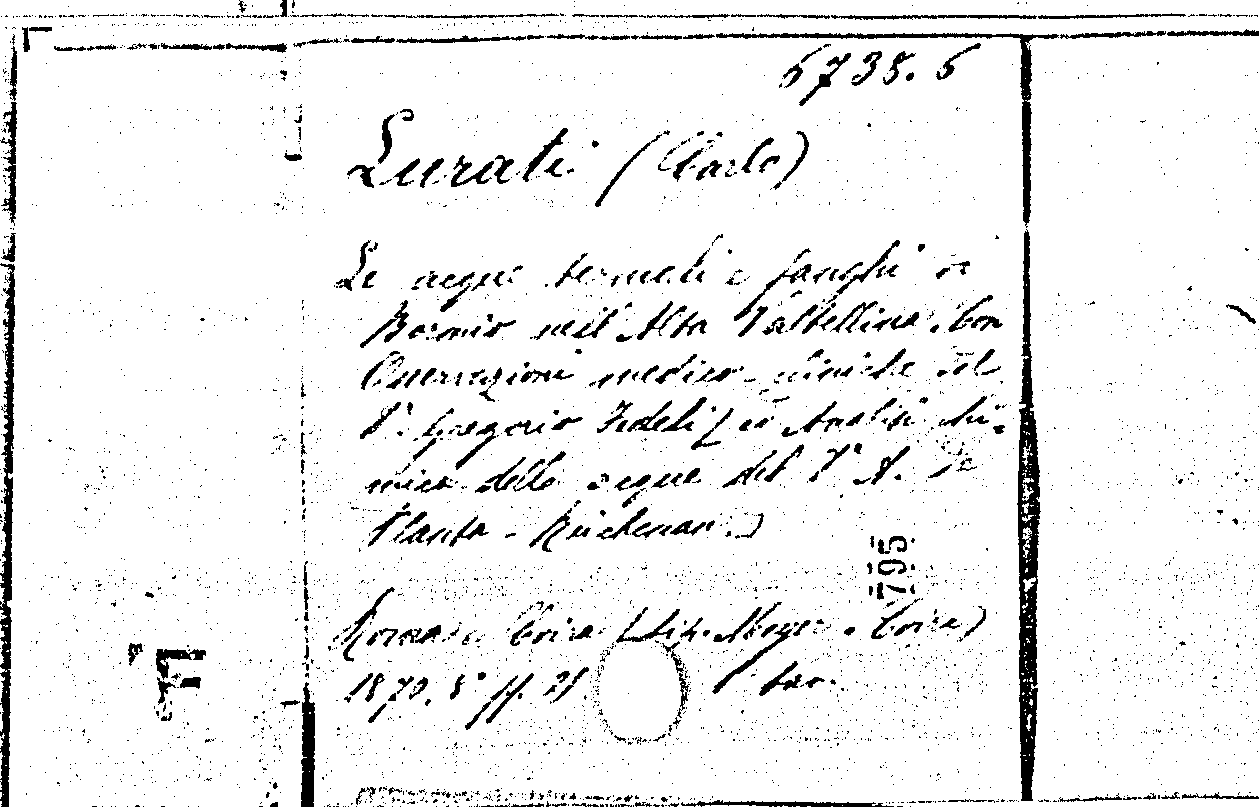 6735.6
Lurati (Carlo)
Le acque termali e fanghi di
Bormio nell'Alta Valtellina. Con
Osservazioni medico-cliniche del
D.r Gregorio Fedeli ed Analisi chi-
mica delle acque del D.r A. De
Planta-Reichenau.
795
Coira (tip. Meyer. Coira)
1870. 8° pp.